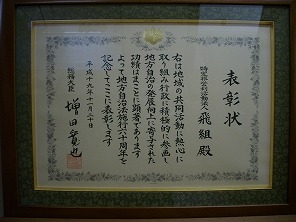 表彰状
特定非営利活動法人 飛組 殿
右は地域の共同活動に熱心に
取り組み行政に積極的に参画し
地方自治の発展向上に寄与された
功績はまことに顕著であります
よって地方自治法施行六十周年を
記念してここに表彰します
平成十九年十一月二十日
総務大臣 増田寛也